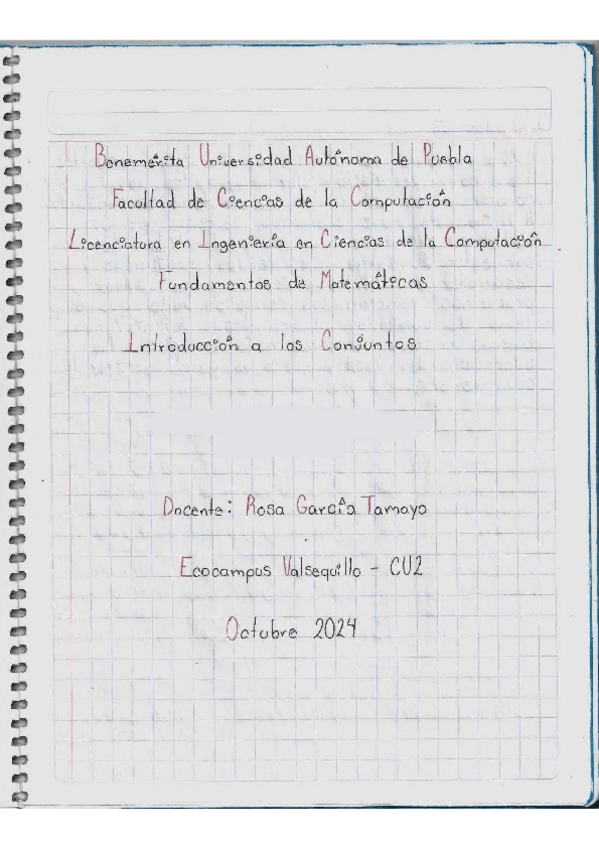 Benemérita Universidad Autónoma de Puebla
Facultad de Ciencias de la Computación
Licenciatura en Ingeniería en Ciencias de la Computación
Fundamentos de Matemáticas
Introducción a los Conjuntos
Docente: Rosa García Tamayo
Ecocampus Valsequillo - CU2
Octubre 2024